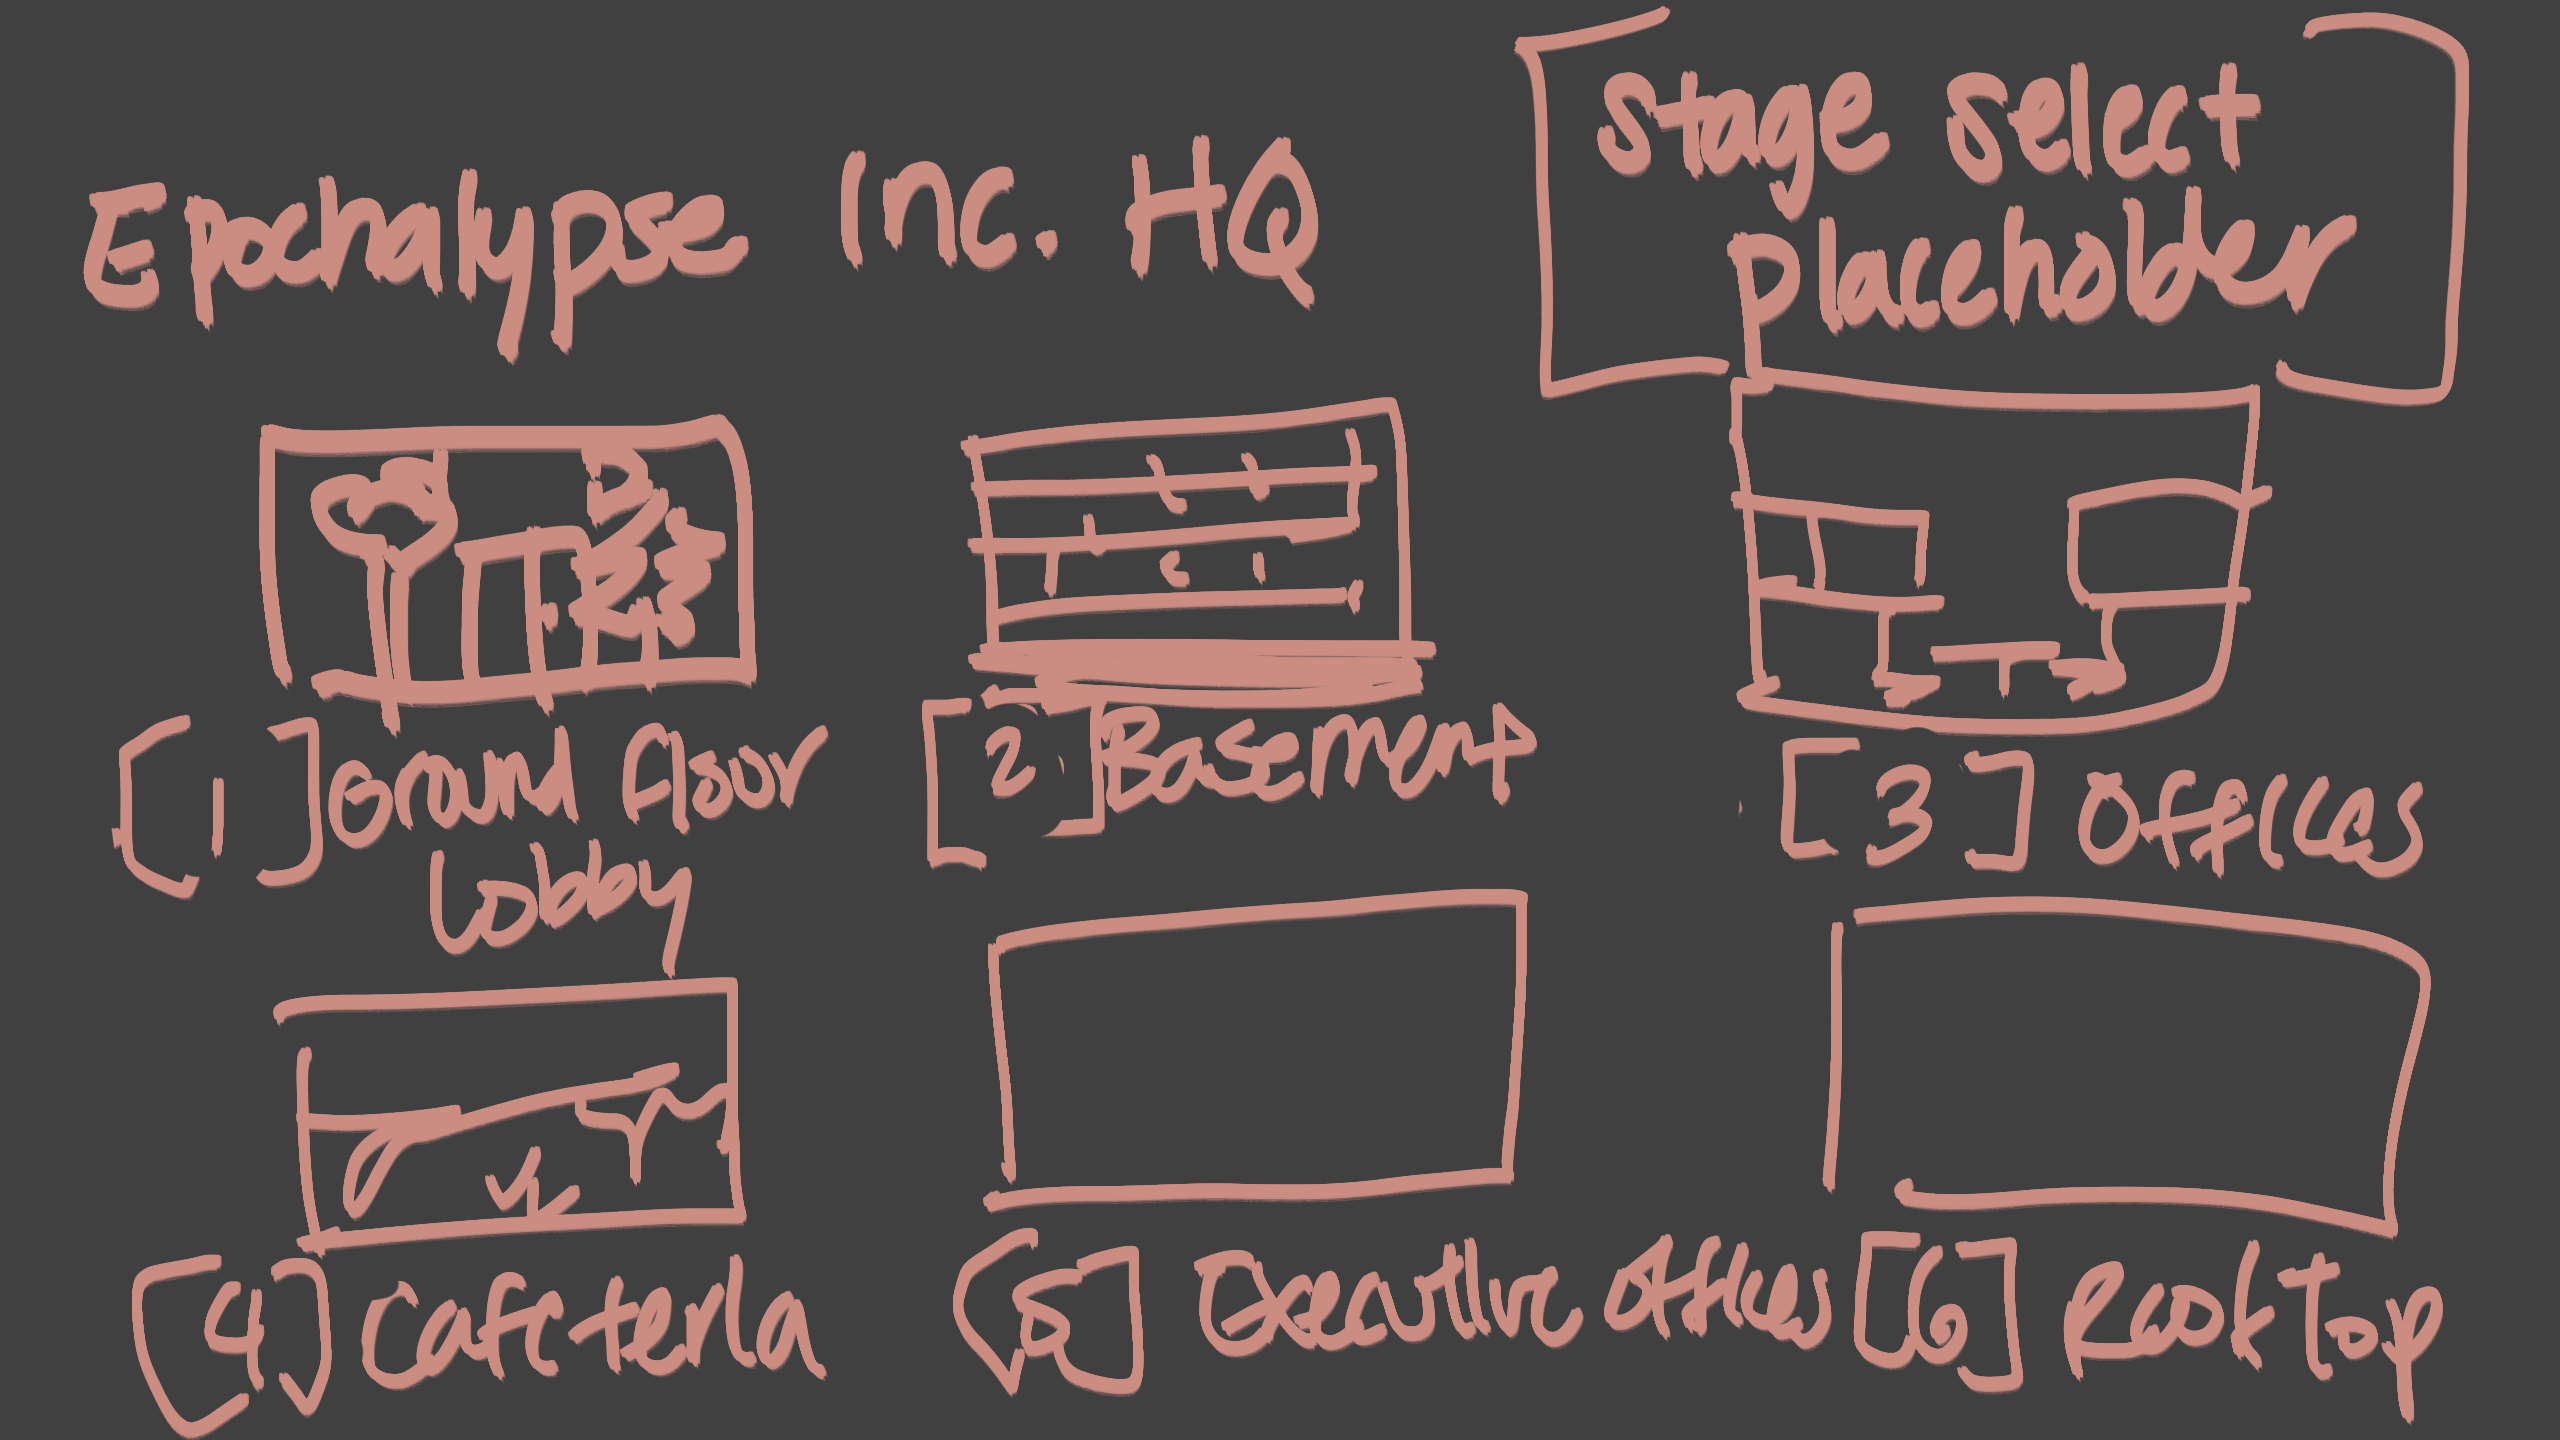 Epochalypse Inc. HQ
[Stage Select
Placeholder]
[1] Ground Floor
Lobby
[2] Basement
[3] Offices
[4] Cafeteria
[5] Executive Offices
[6] Rooftop